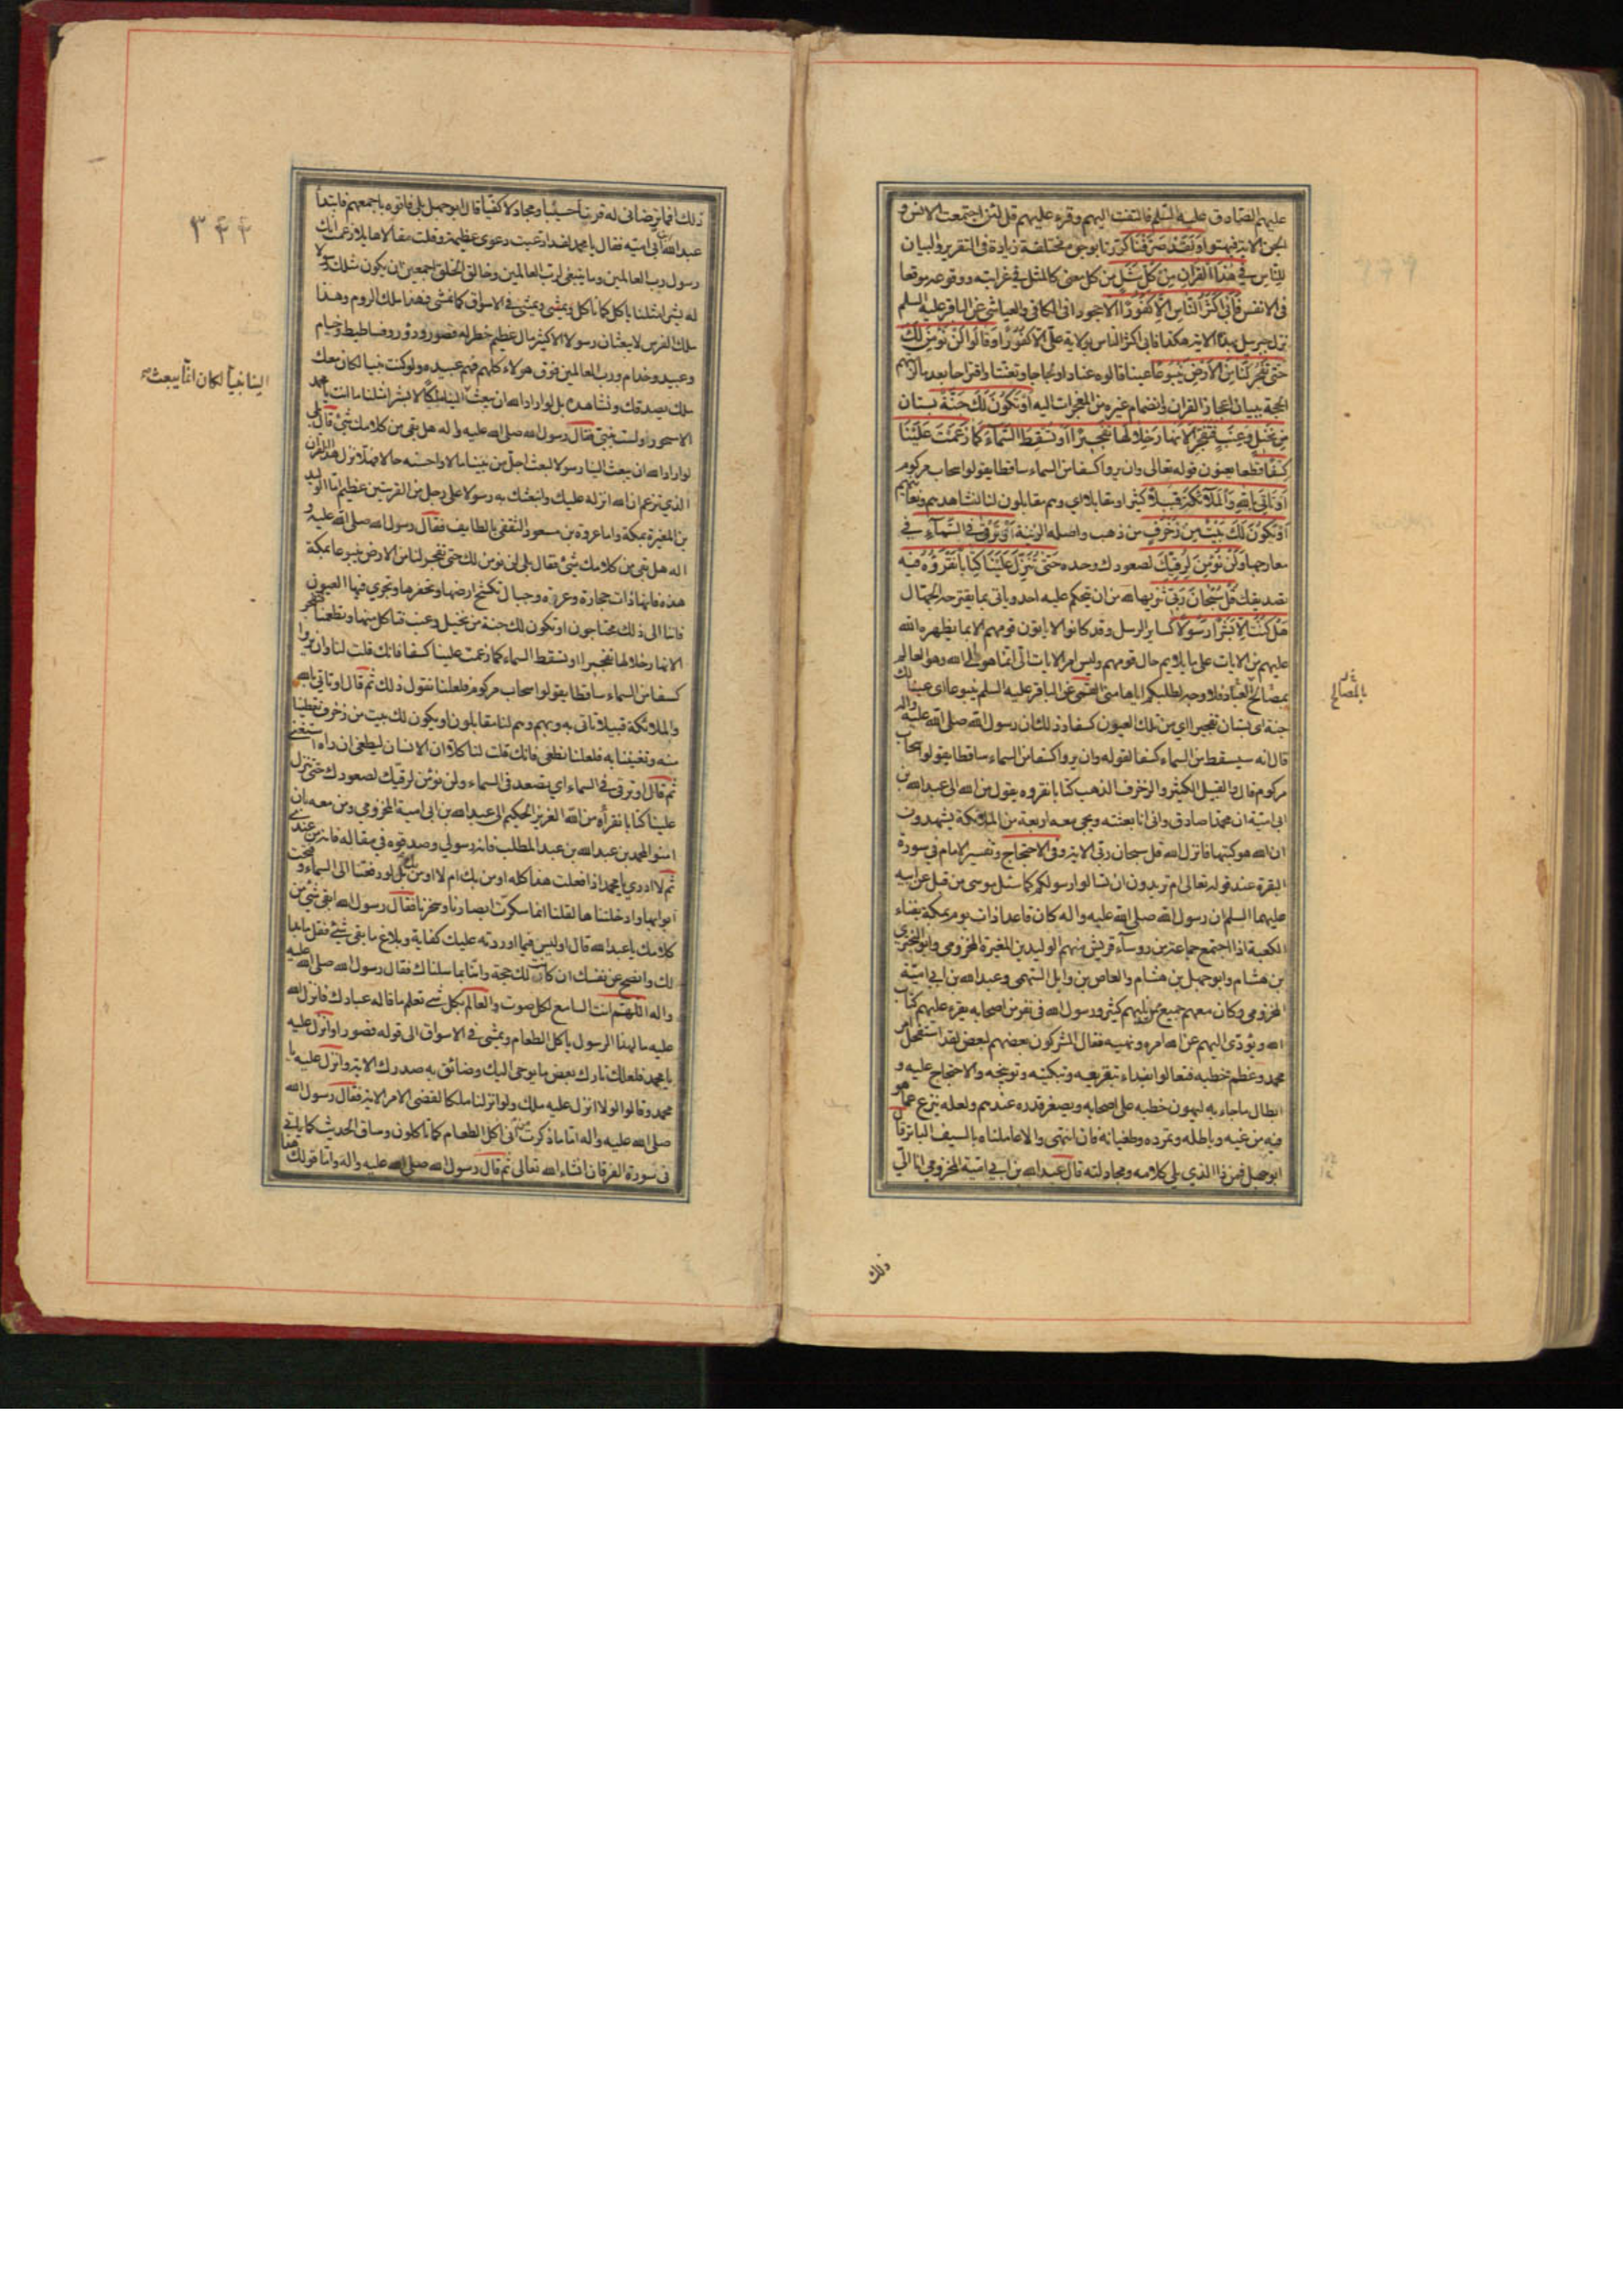 عليهم الصادق عليه السلم فالتفت اليهم وقره عليهم قل لئن اجتمعت الانس و
الجن الاية فبهتوا وَلَقَدْ صَرَّفْنَا كررنا بوجوه مختلفة زيادة في التقرير والبيان
لِلنَّاسِ فِي هٰذَا الْقُرْآنِ مِنْ كُلِّ مَثَلٍ من كل معنى كالمثل في غرابته ووقوعه موقعا
في الانفس فَأَبٰى أَكْثَرُ النَّاسِ إِلَّا كُفُورًا الا جحودا في الكافي والعياشي عن الباقر عليه السلم
نزل جبرئيل بهذه الاية هكذا فابى اكثر الناس بولاية علي الا كفورا وَقَالُوا لَنْ نُؤْمِنَ لَكَ
حَتّٰى تَفْجُرَ لَنَا مِنَ الْأَرْضِ يَنْبُوعًا عينا قالوه عنادا ولجاجا وتعنتا واقتراحا بعد ما الزمهم
الحجة ببيان اعجاز القران وانضمام غيره من المعجزات اليه أَوْ تَكُونَ لَكَ جَنَّةٌ بستان
مِنْ نَخِيلٍ وَعِنَبٍ فَتُفَجِّرَ الْأَنْهَارَ خِلَالَهَا تَفْجِيرًا أَوْ تُسْقِطَ السَّمَاءَ كَمَا زَعَمْتَ عَلَيْنَا
كِسَفًا قطعا يعنون قوله تعالى وان يروا كسفا من السماء ساقطا يقولوا سحاب مركوم
أَوْ تَأْتِيَ بِاللهِ وَالْمَلَائِكَةِ قَبِيلًا كثيرا او مقابلا اي وهم مقابلون لنا نشاهدهم ونعاينهم
أَوْ يَكُونَ لَكَ بَيْتٌ مِنْ زُخْرُفٍ من ذهب واصله الزينة أَوْ تَرْقٰى فِي السَّمَاءِ في
معارجها وَلَنْ نُؤْمِنَ لِرُقِيِّكَ لصعودك وحده حَتّٰى تُنَزِّلَ عَلَيْنَا كِتَابًا نَقْرَؤُهُ فيه
تصديقك قُلْ سُبْحَانَ رَبِّي تنزيها لله من ان يتحكم عليه احد وياتي بما يقترحه الجهال
هَلْ كُنْتُ إِلَّا بَشَرًا رَسُولًا كساير الرسل وقد كانوا لا ياتون قومهم الا بما يظهره الله
عليهم من الايات على ما يلايم حال قومهم وليس امر الايات الي انما هو الى الله وهو العالم
بمصالح العباد فلا وجه لطلبكم اياها مني القمي عن الباقر عليه السلم ينبوعا اي عينا لك
جنة اي بستان تفجيرا اي من تلك العيون كسفا وذلك ان رسول الله صلى الله عليه واله
قال انه سيسقط من السماء كسفا لقوله وان يروا كسفا من السماء ساقطا يقولوا سحاب
مركوم قال والقبيل الكثير والزخرف الذهب كتابا نقروه يقول من الله الى عبد الله بن
ابي امية ان محمدا صادق واني انا بعثته ويجي معه اربعة من الملائكة يشهدون
ان الله هو كتبها فانزل الله قل سبحان ربي الاية وفي الاحتجاج وتفسير الامام في سورة
البقرة عند قوله تعالى ام تريدون ان تسالوا رسولكم كما سئل موسى من قبل عن ابيه
عليهما السلم ان رسول الله صلى الله عليه واله كان قاعدا ذات يوم بمكة بفناء
الكعبة اذا اجتمع جماعة من روساء قريش منهم الوليد بن المغيرة المخزومي وابو البختري
بن هشام وابو جهل بن هشام والعاص بن وايل السهمي وعبد الله بن ابي امية
المخزومي وكان معهم جمع ممن يليهم كثير ورسول الله في نفر من اصحابه يقره عليهم كتاب
الله ويؤدي اليهم عن الله امره ونهيه فقال المشركون بعضهم لبعض لقد استفحل امر
محمد وعظم خطبه فتعالوا نبداء بتقريعه وتبكيته وتوبيخه والاحتجاج عليه و
ابطال ما جاء به ليهون خطبه على اصحابه ويصغر قدره عندهم ولعله ينزع عما هو
فيه من غيه وباطله وتمرده وطغيانه فان انتهى والا عاملناه بالسيف الباتر قال
ابو جهل فمن ذا الذي يلي كلامه ومجادلته قال عبد الله بن ابي امية المخزومي انا الى
بالمصالح
ذلك
ذلك افما ترضاني له قرنا حسيبا ومجادلا كفيا قال ابو جهل بلى فاتوه باجمعهم فابتدأ
عبد الله بن ابي امية فقال يا محمد لقد ادعيت دعوى عظيمة وقلت مقالا هايلا زعمت انك
رسول رب العالمين وما ينبغي لرب العالمين وخالق الخلق اجمعين ان يكون مثلك رسولا
له بشرا مثلنا ياكل كما ناكل ويمشي في الاسواق كما نمشي فهذا ملك الروم وهذا
ملك الفرس لا يبعثان رسولا الا كثير مال عظيم خطر له قصور ودور وفساطيط وخيام
وعبيد وخدام ورب العالمين فوق هولاء كلهم فهم عبيده ولو كنت نبيا لكان معك
ملك يصدقك ونشاهده بل لو اراد الله ان يبعث الينا ملكا لا بشرا مثلنا ما انت يا محمد
الا مسحورا ولست بنبي فقال رسول الله صلى الله عليه واله هل بقي من كلامك شئ قال بلى
لو اراد الله ان يبعث الينا رسولا لبعث اجل من بيننا مالا واحسنه حالا فهلا نزل هذا القران
الذي تزعم ان الله انزله عليك وابتعثك به رسولا على رجل من القريتين عظيم اما الوليد
بن المغيرة بمكة واما عروة بن مسعود الثقفي بالطايف فقال رسول الله صلى الله عليه و
اله هل بقي من كلامك شئ فقال بلى لن نومن لك حتى تفجر لنا من الارض ينبوعا بمكة
هذه فانها ذات حجارة وعرة وجبال تكسح ارضها وتحفرها وتجري فيها العيون
فاننا الى ذلك محتاجون او تكون لك جنة من نخيل وعنب فتاكل منها وتطعمنا فتفجر
الانهار خلالها تفجيرا او تسقط السماء كما زعمت علينا كسفا فانك قلت لنا وان يروا
كسفا من السماء ساقطا يقولوا سحاب مركوم فلعلنا نقول ذلك ثم قال او تاتي بالله
والملائكة قبيلا تاتي به وبهم وهم لنا مقابلون او يكون لك بيت من زخرف تعطينا
منه وتغنينا به فلعلنا نطغى فانك قلت لنا كلا ان الانسان ليطغى ان راه استغنى
ثم قال او ترقى في السماء اي تصعد في السماء ولن نؤمن لرقيك لصعودك حتى تنزل
علينا كتابا نقرأه من الله العزيز الحكيم الى عبد الله بن ابي امية المخزومي ومن معه بان
امنوا بمحمد بن عبد الله بن عبد المطلب فانه رسولي وصدقوه في مقاله فانه من عندي
ثم لا ادري يا محمد اذا فعلت هذا كله اومن بك ام لا اومن بك بل لو رفعتنا الى السماء وفتحت
ابوابها وادخلتناها لقلنا انما سكرت ابصارنا وسحرتنا فقال رسول الله ابقي شئ من
كلامك يا عبد الله قال اوليس فيما اوردته عليك كفاية وبلاغ ما بقي شئ فقل ما بدا
لك وافصح عن نفسك ان كانت لك حجة واتنا بما سالناك فقال رسول الله صلى الله عليه
واله اللهم انت السامع لكل صوت والعالم بكل شئ تعلم ما قاله عبادك فانزل الله
عليه ما لهذا الرسول ياكل الطعام ويمشي في الاسواق الى قوله قصورا وانزل عليه
يا محمد فلعلك تارك بعض ما يوحى اليك وضائق به صدرك الاية وانزل عليه يا
محمد وقالوا لولا انزل عليه ملك ولو انزلنا ملكا لقضي الامر الاية فقال رسول الله
صلى الله عليه واله اما ما ذكرت من اني اكل الطعام كما تاكلون وساق الحديث كما ياتي
في سورة الفرقان انشاء الله تعالى ثم قال رسول الله صلى الله عليه واله واما قولك هذا
٣۴۴
الينا نبيا لكان انما يبعث